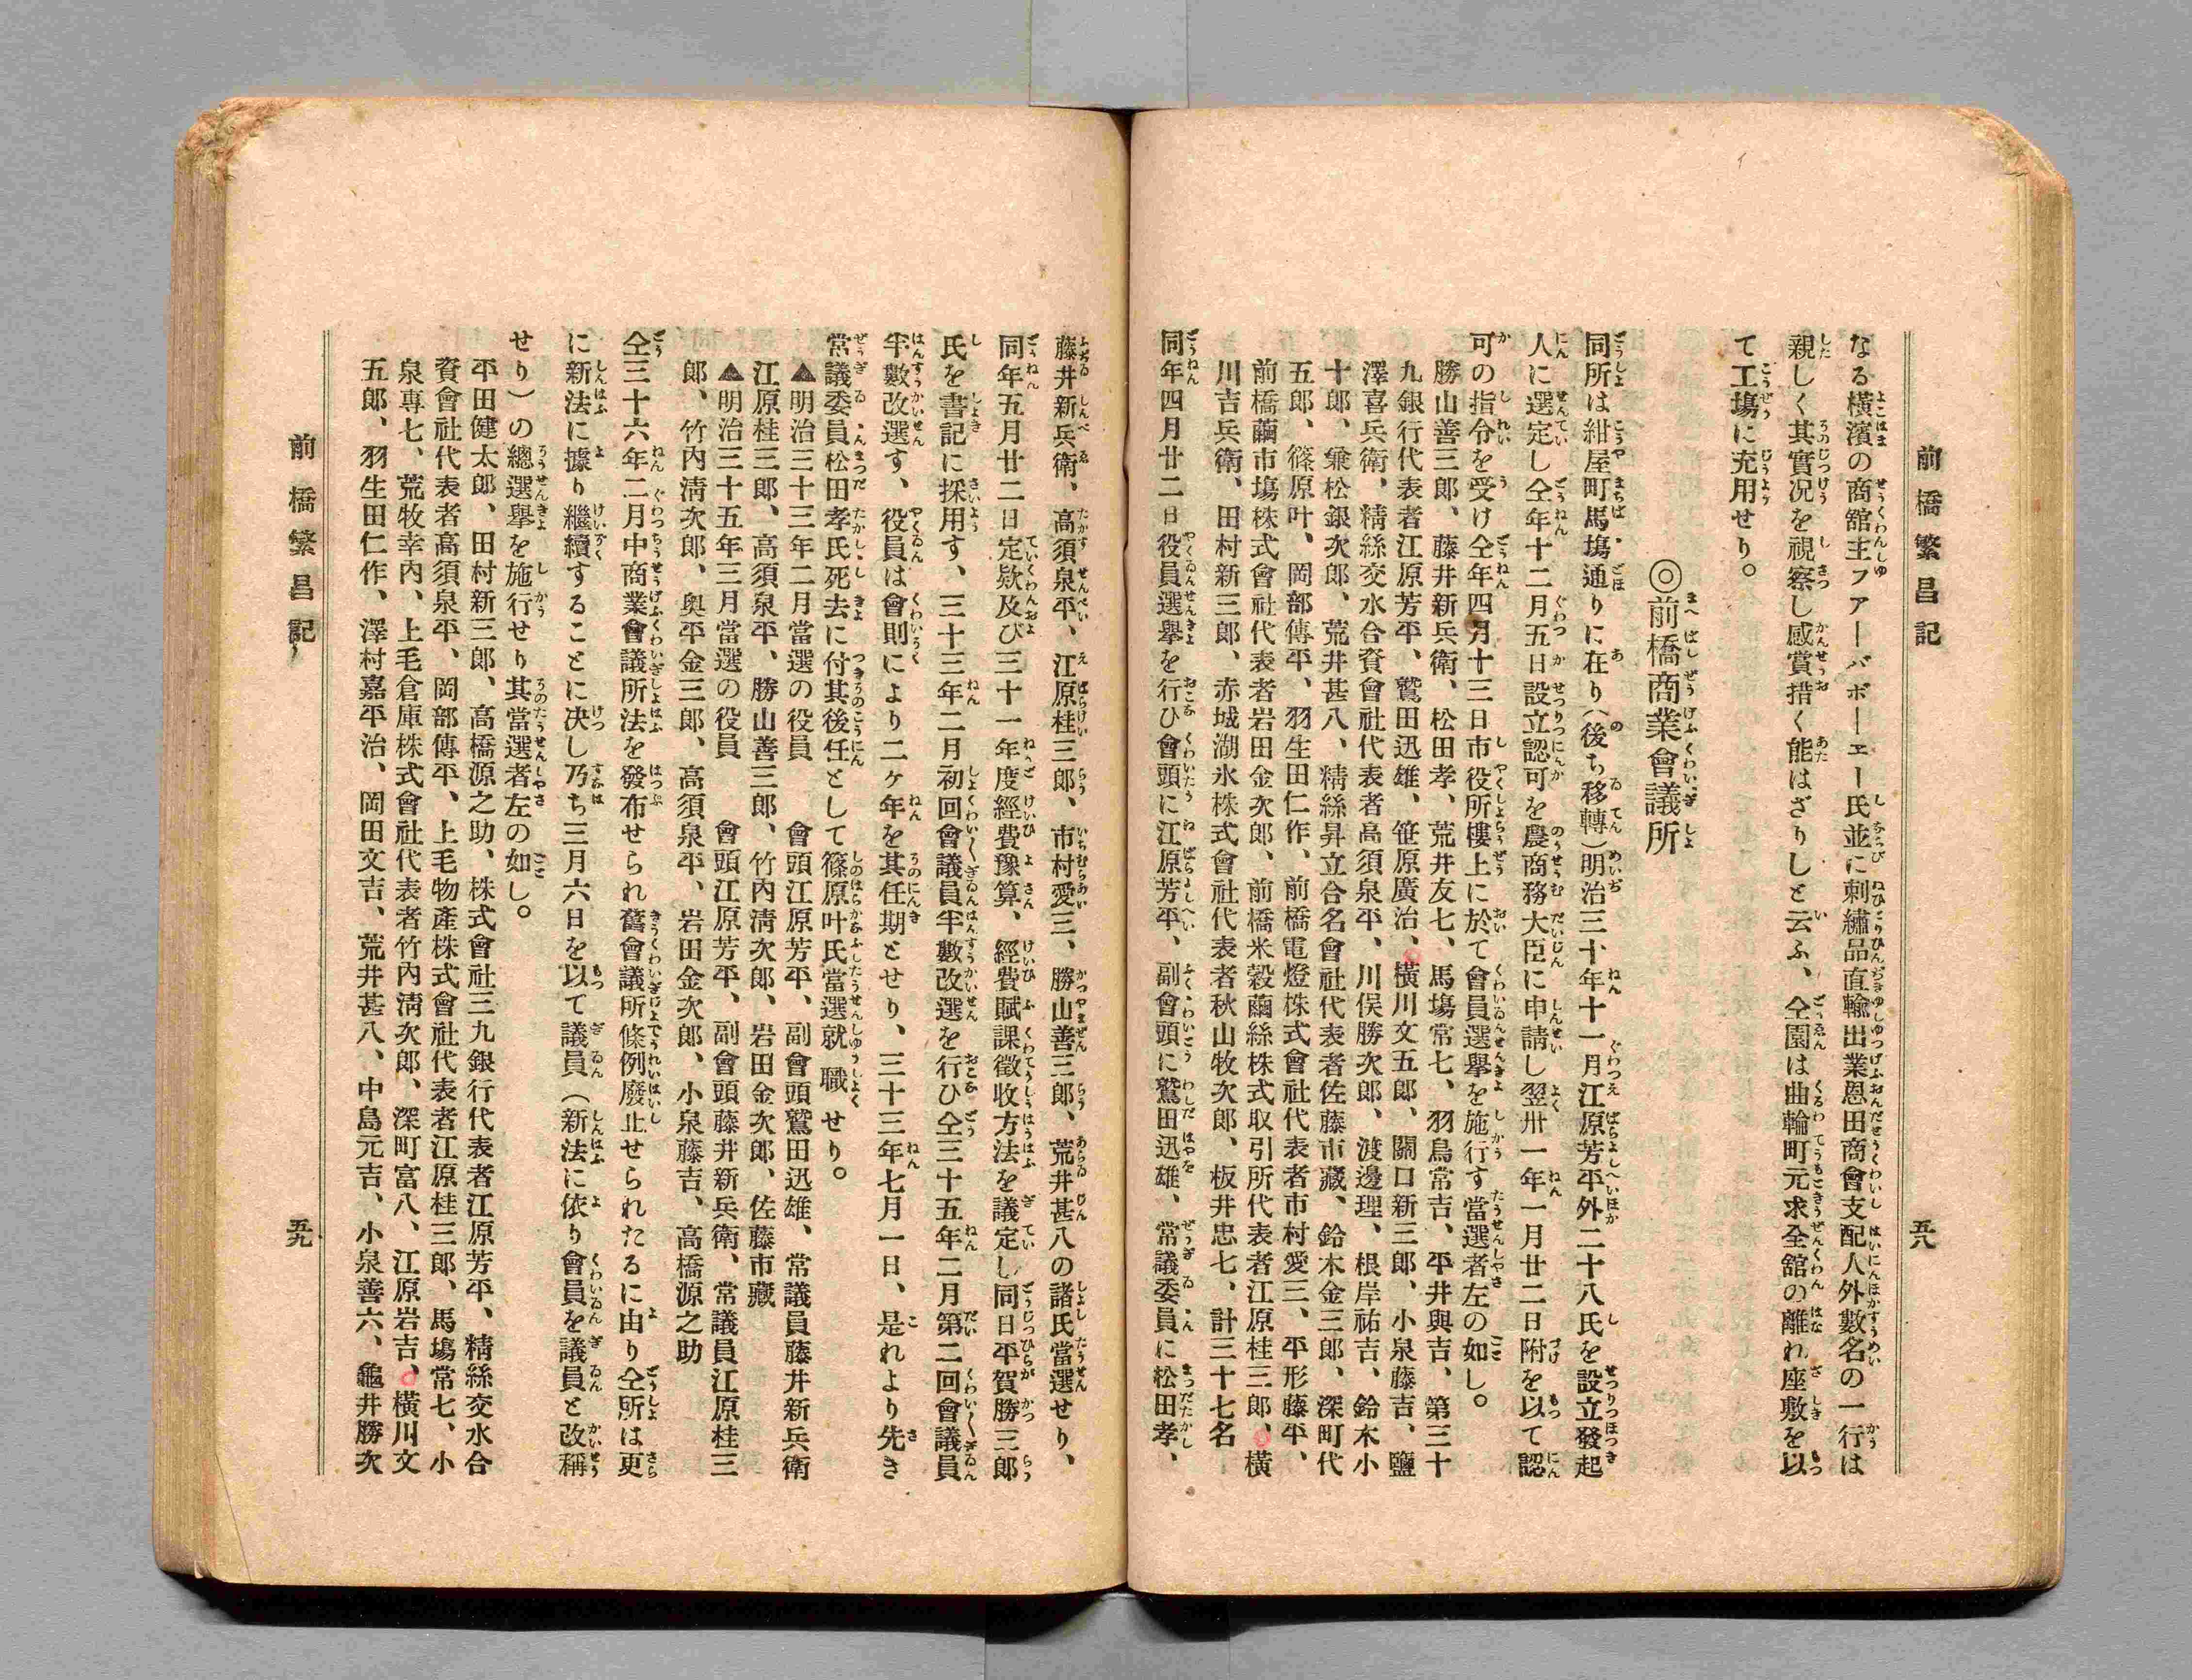 前橋繁昌記
五八
なる横濱の商舘主ファーバボーエー氏並に刺繡品直輸出業恩田商會支配人外數名の一行は
親しく其實况を視察し感賞措く能はざりしと云ふ、仝園は曲輪町元求全舘の離れ座敷を以
て工塲に充用せり。
◎前橋商業會議所
同所は紺屋町馬塲通りに在り（後ち移轉）明治三十年十一月江原芳平外二十八氏を設立發起
人に選定し仝年十二月五日設立認可を農商務大臣に申請し翌卅一年一月廿二日附を以て認
可の指令を受け仝年四月十三日市役所樓上に於て會員選擧を施行す當選者左の如し。
勝山善三郎、藤井新兵衛、松田孝、荒井友七、馬塲常七、羽鳥常吉、平井與吉、第三十
九銀行代表者江原芳平、鷲田迅雄、笹原廣治、橫川文五郎、關口新三郎、小泉藤吉、鹽
澤喜兵衛、精絲交水合資會社代表者高須泉平、川俣勝次郎、渡邊理、根岸祐吉、鈴木小
十郎、乗松銀次郎、荒井甚八、精絲昇立合名會社代表者佐藤市藏、鈴木金三郎、深町代
五郎、篠原叶、岡部傳平、羽生田仁作、前橋電燈株式會社代表者市村愛三、平形藤平、
前橋繭市塲株式會社代表者岩田金次郎、前橋米穀繭絲株式取引所代表者江原桂三郎、橫
川吉兵衛、田村新三郎、赤城湖氷株式會社代表者秋山牧次郎、板井忠七、計三十七名
同年四月廿二日役員選擧を行ひ會頭に江原芳平、副會頭に鷲田迅雄、常議委員に松田孝、
藤井新兵衛、高須泉平、江原桂三郎、市村愛三、勝山善三郎、荒井甚八の諸氏當選せり、
同年五月廿二日定欵及び三十一年度經費豫算、經費賦課徵收方法を議定し同日平賀勝三郎
氏を書記に採用す、三十三年二月初回會議員半數改選を行ひ仝三十五年二月第二回會議員
半數改選す、役員は會則により二ヶ年を其任期とせり、三十三年七月一日、是れより先き
常議委員松田孝氏死去に付其後任として篠原叶氏當選就職せり。
▲明治三十三年二月當選の役員　會頭江原芳平、副會頭鷲田迅雄、常議員藤井新兵衛
江原桂三郎、高須泉平、勝山善三郎、竹內淸次郎、岩田金次郎、佐藤市藏
▲明治三十五年三月當選の役員　會頭江原芳平、副會頭藤井新兵衛、常議員江原桂三
郎、竹內淸次郎、奧平金三郎、高須泉平、岩田金次郎、小泉藤吉、高橋源之助
仝三十六年二月中商業會議所法を發布せられ舊會議所條例廢止せられたるに由り仝所は更
に新法に據り繼續することに決し乃ち三月六日を以て議員（新法に依り會員を議員と改稱
せり）の總選擧を施行せり其當選者左の如し。
平田健太郎、田村新三郎、高橋源之助、株式會社三九銀行代表者江原芳平、精絲交水合
資會社代表者高須泉平、岡部傳平、上毛物產株式會社代表者江原桂三郎、馬塲常七、小
泉專七、荒牧幸內、上毛倉庫株式會社代表者竹內淸次郎、深町富八、江原岩吉、橫川文
五郎、羽生田仁作、澤村嘉平治、岡田文吉、荒井甚八、中島元吉、小泉善六、龜井勝次
前橋繁昌記
五九